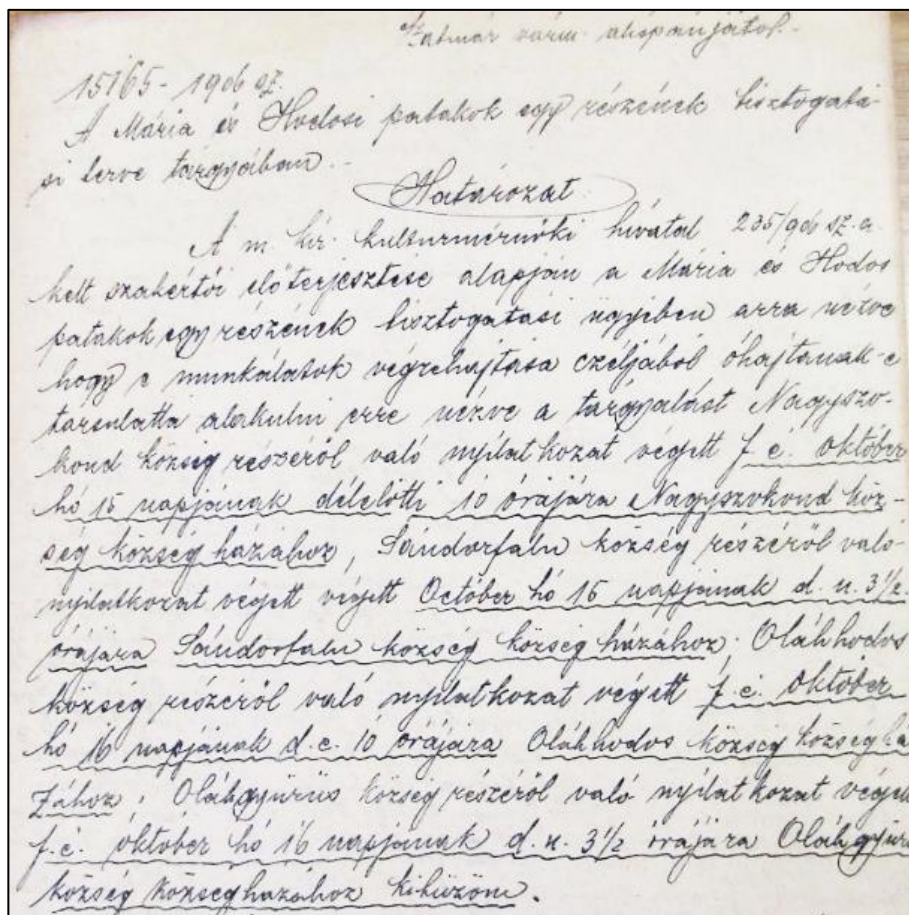 Szatmár várm. alispánjától.-
15165-1906 sz.
A Mária és Hodosi patakok egy részének tisztogatá-
si terve tárgyában.-
Határozat
A m. kir. kulturmérnöki hivatal 235/906 sz. a.
kelt szakértői előterjesztése alapján a Mária és Hodos
patakok egy részének tisztogatási ügyében arra nézve
hogy e munkálatok végrehajtása czéljából óhajtanak-e
társulattá alakulni erre nézve a tárgyalást Nagyszo-
kond község részéről való nyilatkozat végett f. é. október
hó 15 napjának délelőtti 10 órájára Nagyszokond köz-
ség község házához, Sándorfalu község részéről való
nyilatkozat végett végett October hó 15 napjának d. u. 3 1/2
órájára Sándorfalu község község házához; Oláhhodos
község részéről való nyilatkozat végett f. é. október
hó 16 napjának d. e. 10 órájára Oláhhodos község község há
zához; Oláhgyürüs község részéről való nyilatkozat végett
f. é. október hó 16 napjának d. u. 3 1/2 órájára Oláhgyürü
község község házához kitüzöm.